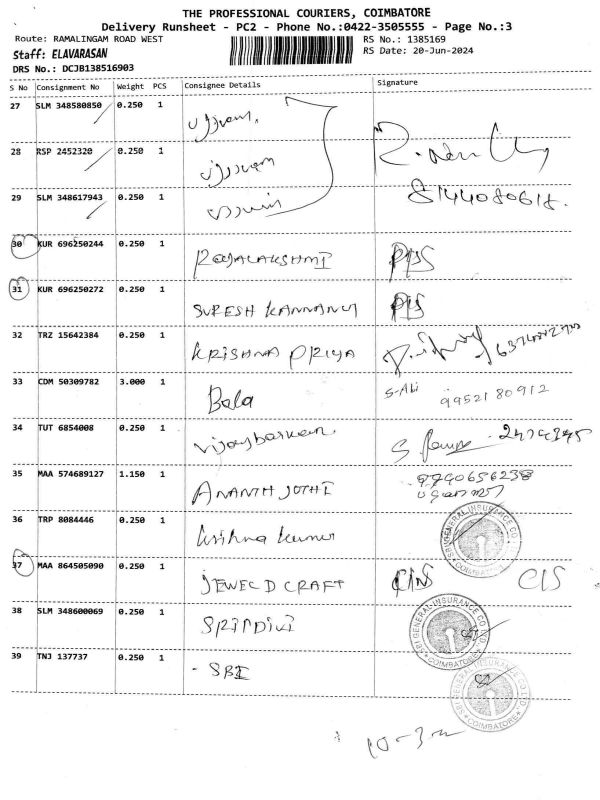 THE PROFESSIONAL COURIERS, COIMBATORE
Delivery Runsheet - PC2 - Phone No.:0422-3505555 - Page No.:3
Route: RAMALINGAM ROAD WEST RS No.: 1385169
Staff: ELAVARASAN RS Date: 20-Jun-2024
DRS No.: DCJB138516903
S No Consignment No Weight PCS Consignee Details Signature
27 SLM 348580850 0.250 1
28 RSP 2452320 0.250 1
29 SLM 348617943 0.250 1
8144080618.
30 KUR 696250244 0.250 1 RAJALAKSHMI
31 KUR 696250272 0.250 1 SURESH KANNAN
32 TRZ 15642384 0.250 1 KRISHNA PRIYA
33 CDM 50309782 3.000 1 Bala S-Abi
9952180912
34 TUT 6854008 0.250 1
35 MAA 574689127 1.150 1 ANANTH JOTHI 9790656238
36 TRP 8084446 0.250 1 Krishna Kumar
SBI GENERAL INSURANCE CO COIMBATORE
37 MAA 864505090 0.250 1 JEWEL D CRAFT CIS
38 SLM 348600069 0.250 1 SRIDIVI
SBI GENERAL INSURANCE CO LTD COIMBATORE
39 TNJ 137737 0.250 1 - SBI
SBI GENERAL INSURANCE CO LTD COIMBATORE
10-3-